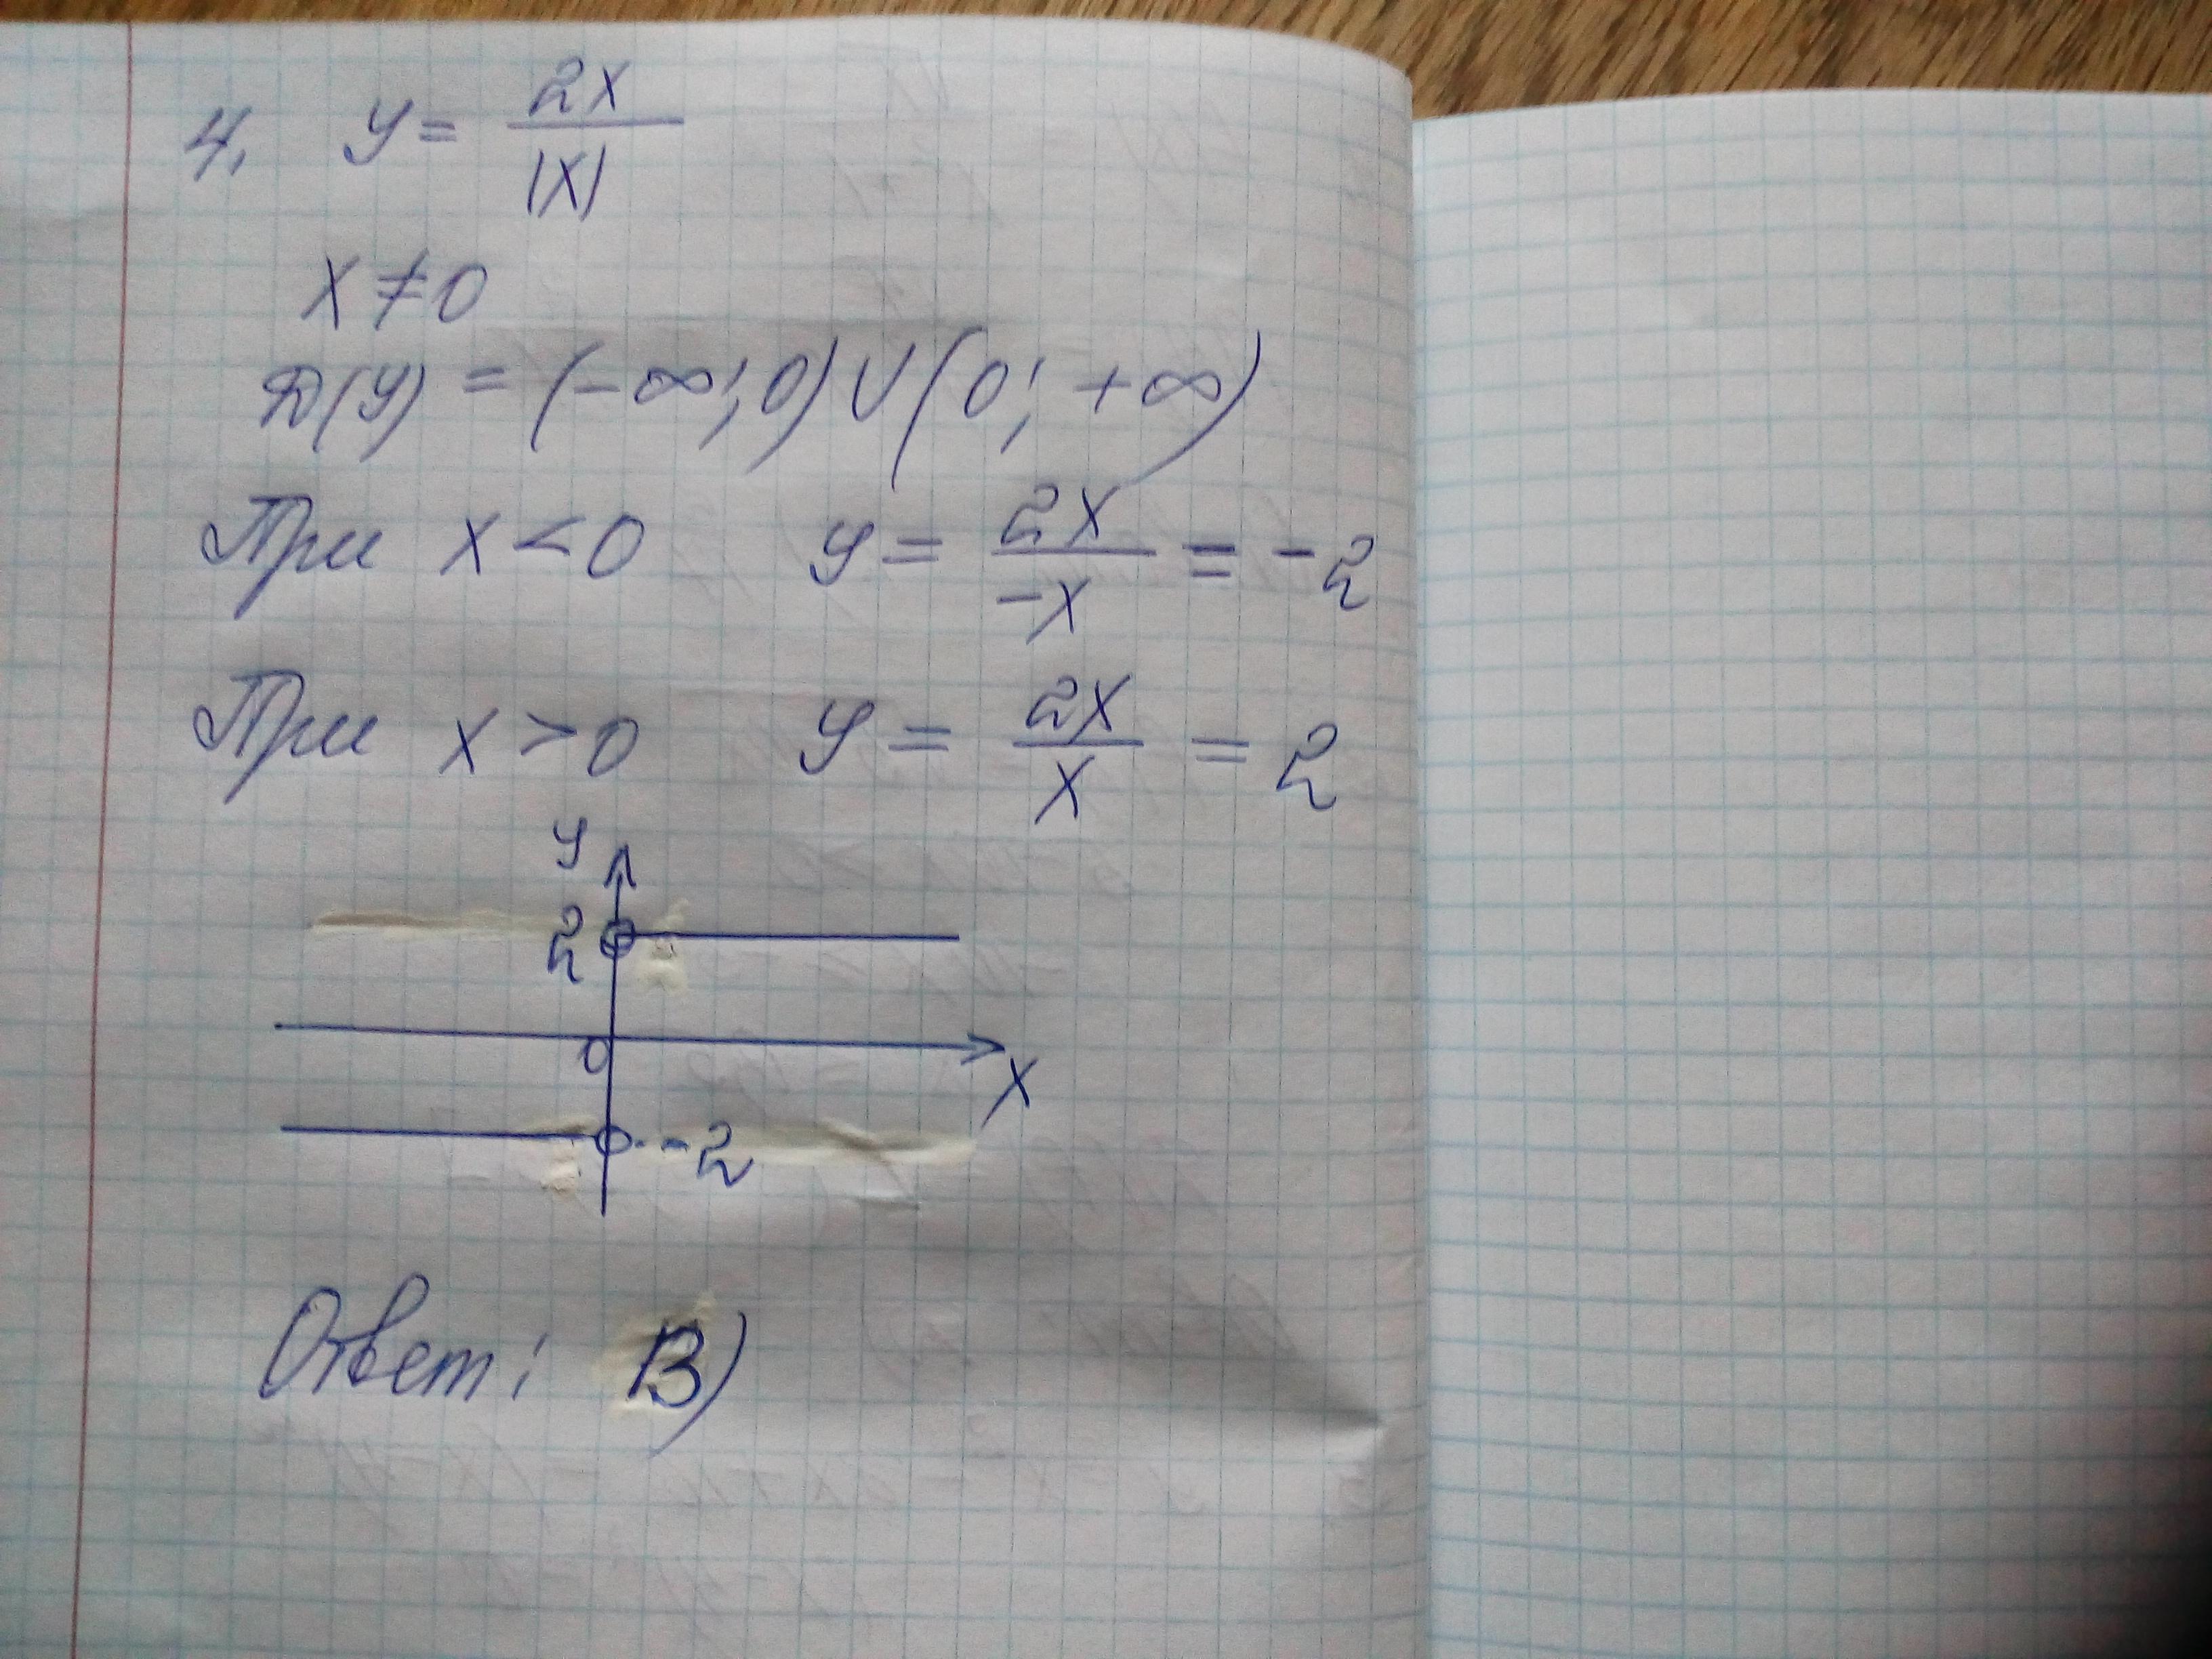 4. y = 2x / |x|
x ≠ 0
D(y) = (-∞; 0) ∪ (0; +∞)
При x < 0 y = 2x / -x = -2
При x > 0 y = 2x / x = 2
y
2
0
x
-2
Ответ: В)